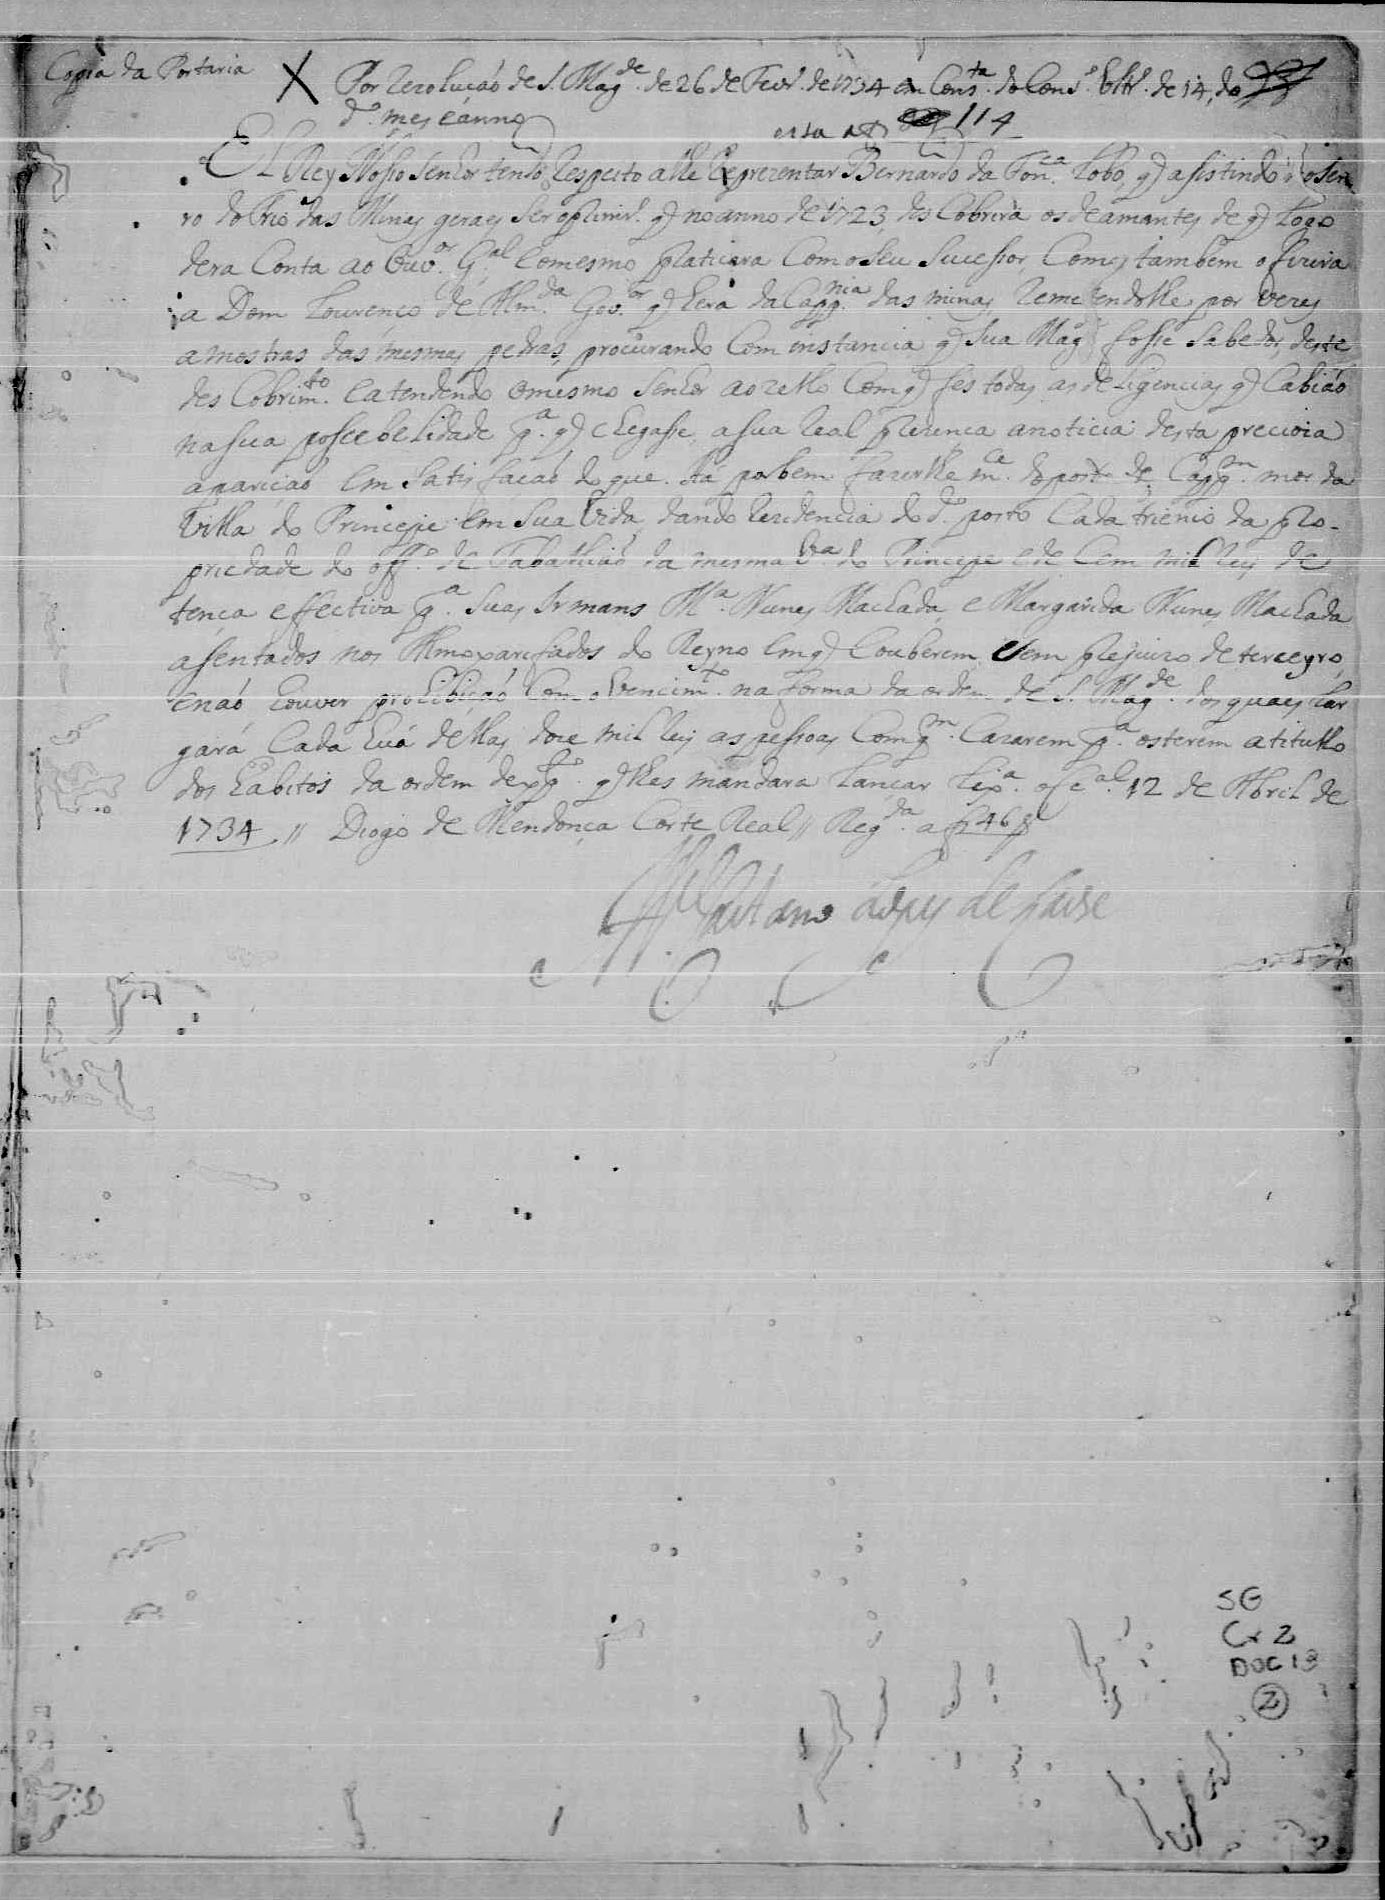 Copia da Portaria
Por rezolução de S. Mag.de de 26 de Fevr.o de 1734 em Cons.ta do Cons.o Ultr.o de 14, do
d.o mes e anno
esta a f 114
El Rey Nosso Senhor tendo respeito a lhe reprezentar Bernardo da Fon.ca Lobo, q̃ asistindo no ser
ro do frio das Minas geraes ser o prim.ro q̃ no anno de 1723 des Cobrira os deamantes de q̃ Logo
dera Conta ao Ouv.or G.al e o mesmo praticara Com o seu Sucessor, Como tambem o fizera
a Dom Lourenço de Alm.da Gov.or q̃ hera da Capp.nia das minas, remetendolhe por vezes
amostras das mesmas pedras, procurando Com instancia q̃ Sua Mag.de fosse Sabedor, deste
des Cobrim.to e atendendo o mesmo Senhor ao zello Com q̃ fes todas as deligencias q̃ Cabião
na sua possebelidade p.a q̃ chegasse a sua real prezença a noticia desta precioza
apariçaõ em Satisfaçaõ do que. Há por bem fazerlhe m.ce do posto de Capp.m mor da
Villa do Princepe em Sua Vida, dando rezidencia do d.o posto Cada trienio da pro-
priedade do off.o de Taballiaõ da mesma V.a do Princepe e de Cem mil reis de
tença effectiva p.a Suas Irmans M.a Nunes Machada, e Margarida Nunes Machada
asentados nos Almoxarifados do Reyno em q̃ Couberem, e sem prejuizo de terceyro,
e naõ houver prohibiçaõ Com o Vencim.to na forma da ordem de S. Mag.de dos quaes Lar
gará Cada huã dellas doze mil reis as pessoas Com q.m Cazarem p.a os terem a titullo
dos habitos da ordem de xp.o q̃ lhes mandara Lançar Lix.a occ.al 12 de Abril de
1734 // Diogo de Mendonça Corte Real // Reg.da a f 46
Caetano Lopes de Lavre
SG
Cx 2
DOC 13
2